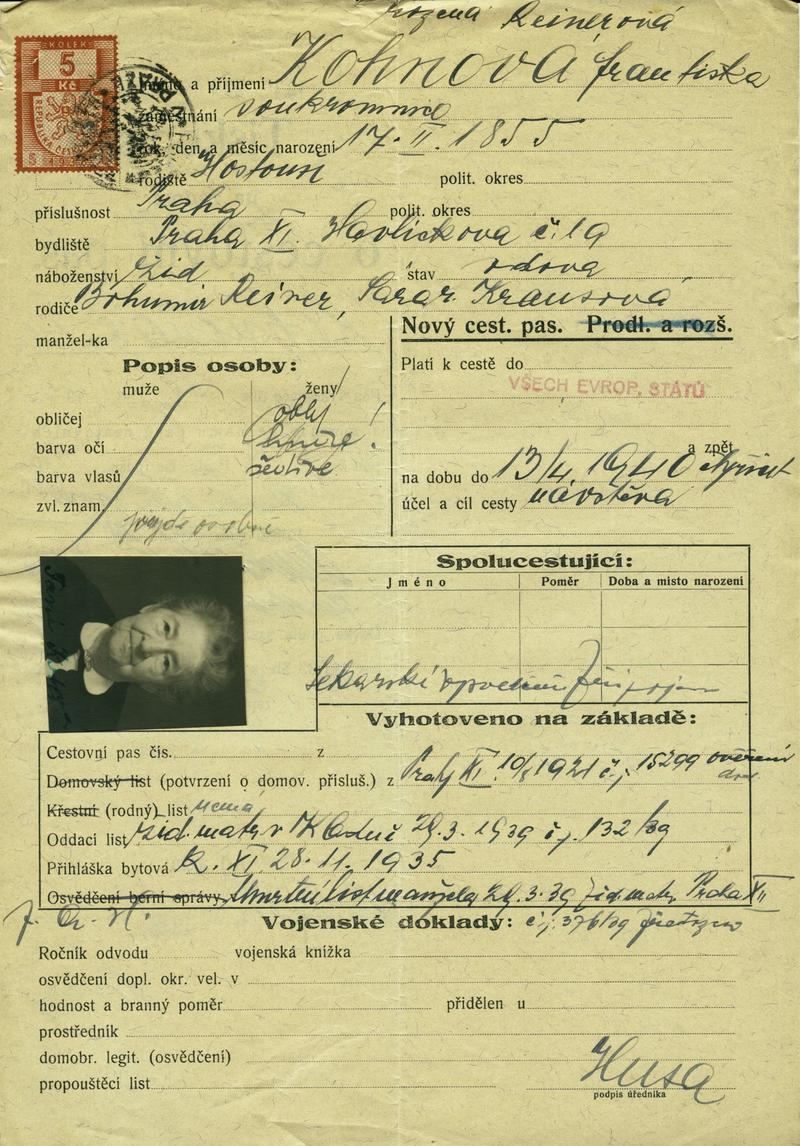 rozená Reinerová
KOLEK
5
Kč
Jméno a příjmení Kohnová Františka
zaměstnání soukromnice
rok, den a měsíc narození 17. II. 1855
rodiště Hostouň polit. okres
příslušnost Praha polit. okres
bydliště Praha XI. Havlíčkova č. 19
náboženství žid stav vdova
rodiče Bohumír Reiner, Sara Krausová
manžel-ka
Nový cest. pas. Prodl. a rozš.
Popis osoby:
muže ženy
obličej oblý
barva očí
barva vlasů šedivé
zvl. znam.
přijde osobně
Platí k cestě do
VŠECH EVROP. STÁTŮ
a zpět
na dobu do 13/4. 1940
účel a cíl cesty návštěva
Spolucestující:
Jméno Poměr Doba a místo narození
Lékařské
Vyhotoveno na základě:
Cestovní pas čís. z
Domovský list (potvrzení o domov. přísluš.) z Prahy XI. 1921 č.j. 15299 ověření
Křestní (rodný) list nemá
Oddací list žid. matr. v Kladně 29.3.1939 č.j. 132/39
Přihláška bytová k. XI 28.11.1935
Osvědčení berní správy Úmrtní list manžela 29.3.39 žid. matr. Praha XII
č.j. 376/39
Vojenské doklady:
Ročník odvodu vojenská knížka
osvědčení dopl. okr. vel. v
hodnost a branný poměr přidělen u
prostředník
domobr. legit. (osvědčení)
propouštěcí list
Husa
podpis úředníka